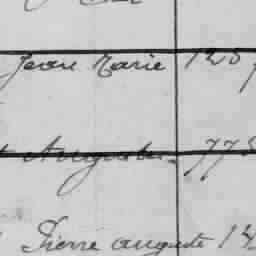 Jean Marie 125
Augustin 775
Pierre auguste 14